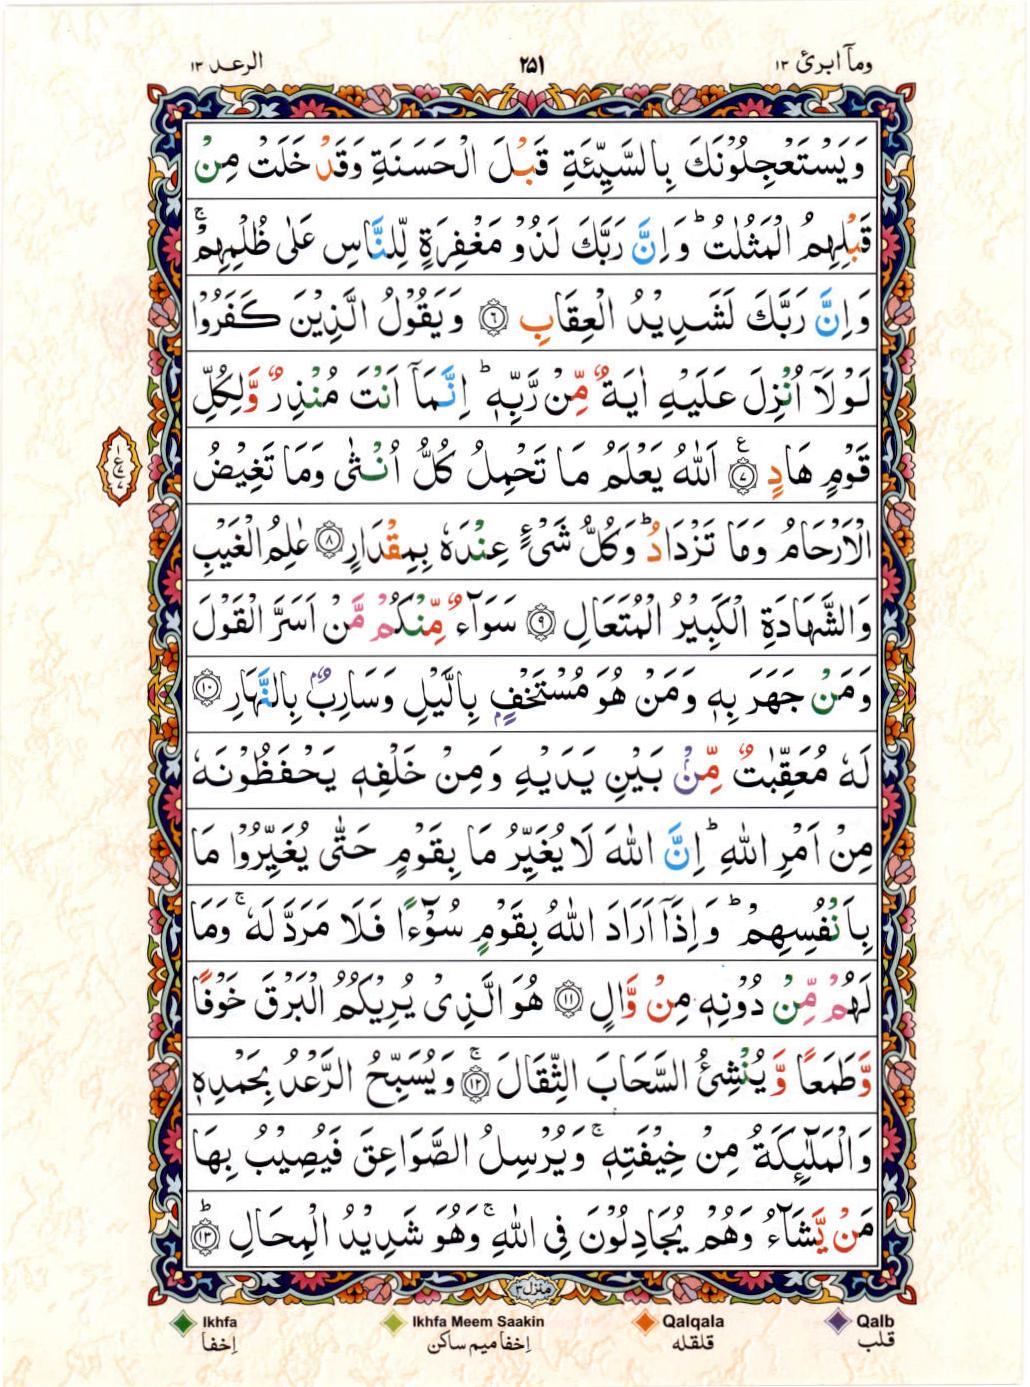 الرعد ١٣ ٢٥١ ومآ ابرئ ١٣
وَيَسْتَعْجِلُوْنَكَ بِالسَّيِّئَةِ قَبْلَ الْحَسَنَةِ وَقَدْ خَلَتْ مِنْ
قَبْلِهِمُ الْمَثُلٰتُ ؕ وَ اِنَّ رَبَّكَ لَذُوْ مَغْفِرَةٍ لِّلنَّاسِ عَلٰى ظُلْمِهِمْ ۚ
وَ اِنَّ رَبَّكَ لَشَدِيْدُ الْعِقَابِ ۝٦ وَيَقُوْلُ الَّذِيْنَ كَفَرُوْا
لَوْلَاۤ اُنْزِلَ عَلَيْهِ اٰيَةٌ مِّنْ رَّبِّهٖ ؕ اِنَّمَاۤ اَنْتَ مُنْذِرٌ وَّلِكُلِّ
قَوْمٍ هَادٍ ۝٧ اَللّٰهُ يَعْلَمُ مَا تَحْمِلُ كُلُّ اُنْثٰى وَمَا تَغِيْضُ
الْاَرْحَامُ وَمَا تَزْدَادُ ؕ وَكُلُّ شَىْءٍ عِنْدَهٗ بِمِقْدَارٍ ۝٨ عٰلِمُ الْغَيْبِ
وَالشَّهَادَةِ الْكَبِيْرُ الْمُتَعَالِ ۝٩ سَوَآءٌ مِّنْكُمْ مَّنْ اَسَرَّ الْقَوْلَ
وَمَنْ جَهَرَ بِهٖ وَمَنْ هُوَ مُسْتَخْفٍۭ بِالَّيْلِ وَسَارِبٌۢ بِالنَّهَارِ ۝١٠
لَهٗ مُعَقِّبٰتٌ مِّنْۢ بَيْنِ يَدَيْهِ وَمِنْ خَلْفِهٖ يَحْفَظُوْنَهٗ
مِنْ اَمْرِ اللّٰهِ ؕ اِنَّ اللّٰهَ لَا يُغَيِّرُ مَا بِقَوْمٍ حَتّٰى يُغَيِّرُوْا مَا
بِاَنْفُسِهِمْ ؕ وَ اِذَاۤ اَرَادَ اللّٰهُ بِقَوْمٍ سُوْٓءًا فَلَا مَرَدَّ لَهٗ ۚ وَمَا
لَهُمْ مِّنْ دُوْنِهٖ مِنْ وَّالٍ ۝١١ هُوَ الَّذِىْ يُرِيْكُمُ الْبَرْقَ خَوْفًا
وَّطَمَعًا وَّيُنْشِئُ السَّحَابَ الثِّقَالَ ۚ ۝١٢ وَيُسَبِّحُ الرَّعْدُ بِحَمْدِهٖ
وَالْمَلٰٓئِكَةُ مِنْ خِيْفَتِهٖ ۚ وَيُرْسِلُ الصَّوَاعِقَ فَيُصِيْبُ بِهَا
مَنْ يَّشَآءُ وَهُمْ يُجَادِلُوْنَ فِى اللّٰهِ ۚ وَهُوَ شَدِيْدُ الْمِحَالِ ؕ ۝١٣
منزل ٣
Ikhfa Ikhfa Meem Saakin Qalqala Qalb
اِخفا اِخفا میم ساکن قلقله قلب